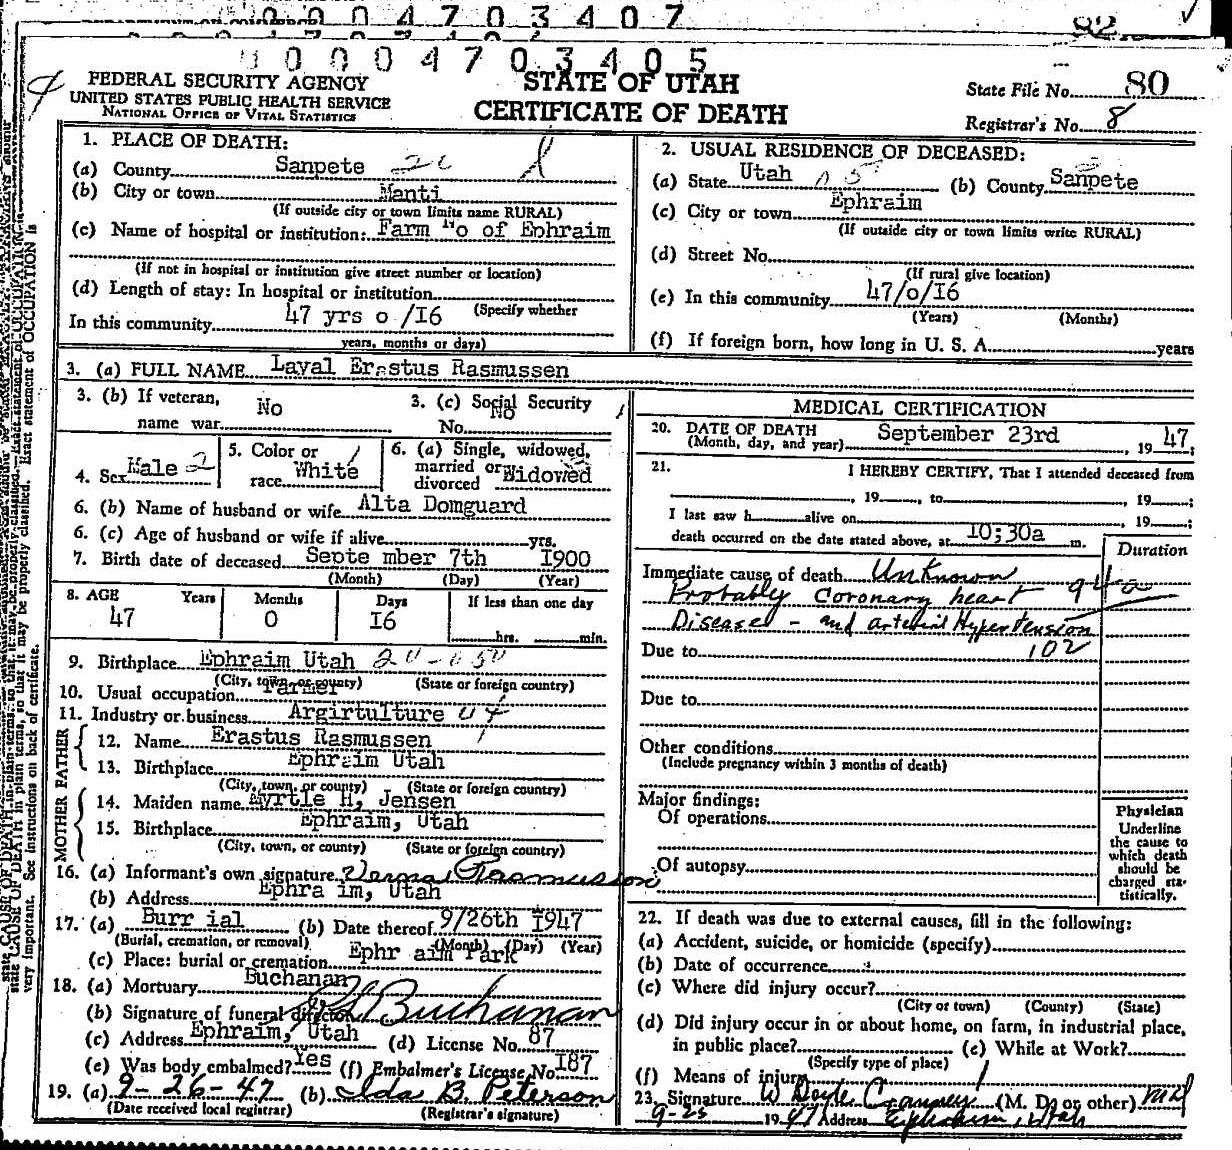 0 0 0 4 7 0 3 4 0 7
82
0 0 0 0 4 7 0 3 4 0 5
FEDERAL SECURITY AGENCY
UNITED STATES PUBLIC HEALTH SERVICE
NATIONAL OFFICE OF VITAL STATISTICS
STATE OF UTAH
CERTIFICATE OF DEATH
State File No. 80
Registrar's No. 8
1. PLACE OF DEATH:
(a) County Sanpete
(b) City or town Manti
(If outside city or town limits name RURAL)
(c) Name of hospital or institution: Farm No of Ephraim
(If not in hospital or institution give street number or location)
(d) Length of stay: In hospital or institution
(Specify whether
In this community 47 yrs o /I6
years, months or days)
2. USUAL RESIDENCE OF DECEASED:
(a) State Utah (b) County Sanpete
(c) City or town Ephraim
(If outside city or town limits write RURAL)
(d) Street No.
(If rural give location)
(e) In this community 47/0/I6
(Years) (Months)
(f) If foreign born, how long in U. S. A. years
3. (a) FULL NAME Laval Erastus Rasmussen
3. (b) If veteran, name war No
3. (c) Social Security No. No
4. Sex Male 2
5. Color or race White
6. (a) Single, widowed, married or divorced Widowed
6. (b) Name of husband or wife Alta Domguard
6. (c) Age of husband or wife if alive yrs.
7. Birth date of deceased Septe mber 7th I900
(Month) (Day) (Year)
8. AGE Years Months Days If less than one day
47 0 I6 hrs. min.
9. Birthplace Ephraim Utah
(City, town, or county) (State or foreign country)
10. Usual occupation Farmer
11. Industry or business Argirtulture
FATHER
12. Name Erastus Rasmussen
13. Birthplace Ephraim Utah
(City, town, or county) (State or foreign country)
MOTHER
14. Maiden name Myrtle H, Jensen
15. Birthplace Ephraim, Utah
(City, town, or county) (State or foreign country)
16. (a) Informant's own signature Verma Rasmussen
(b) Address Ephra im, Utah
17. (a) Burr ial (b) Date thereof 9/26th I947
(Burial, cremation, or removal) (Month) (Day) (Year)
(c) Place: burial or cremation Ephr aim Park
18. (a) Mortuary Buchanan
(b) Signature of funeral director Buchanan
(c) Address Ephraim, Utah (d) License No. 87
(e) Was body embalmed? Yes (f) Embalmer's License No. I87
19. (a) 9-26-47 (b) Ida B. Peterson
(Date received local registrar) (Registrar's signature)
MEDICAL CERTIFICATION
20. DATE OF DEATH
(Month, day, and year) September 23rd, 19 47;
21. I HEREBY CERTIFY, That I attended deceased from
, 19 , to , 19 ;
I last saw h alive on , 19 ;
death occurred on the date stated above, at I0;30a m.
Duration
Immediate cause of death Unknown
Probably Coronary heart 94a
Disease - and arterial Hypertension
Due to 102
Due to
Other conditions
(Include pregnancy within 3 months of death)
Major findings:
Of operations
Of autopsy
Physician
Underline
the cause to
which death
should be
charged sta-
tistically.
22. If death was due to external causes, fill in the following:
(a) Accident, suicide, or homicide (specify)
(b) Date of occurrence
(c) Where did injury occur?
(City or town) (County) (State)
(d) Did injury occur in or about home, on farm, in industrial place,
in public place? (e) While at Work?
(Specify type of place)
(f) Means of injury
23. Signature W Doyle Cranney (M. D. or other) MD
9-25 1947 Address Ephraim, Utah